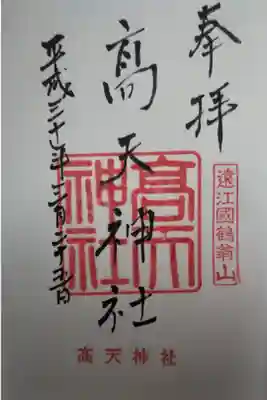 奉拝
遠江國鶴翁山
髙天神社
髙天
神社
平成三十年三月二十五日
髙天神社